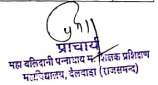 प्राचार्य
महा बलिदानी पन्नाधाय म. शिक्षक प्रशिक्षण
महाविद्यालय, देलवाड़ा (राजसमन्द)